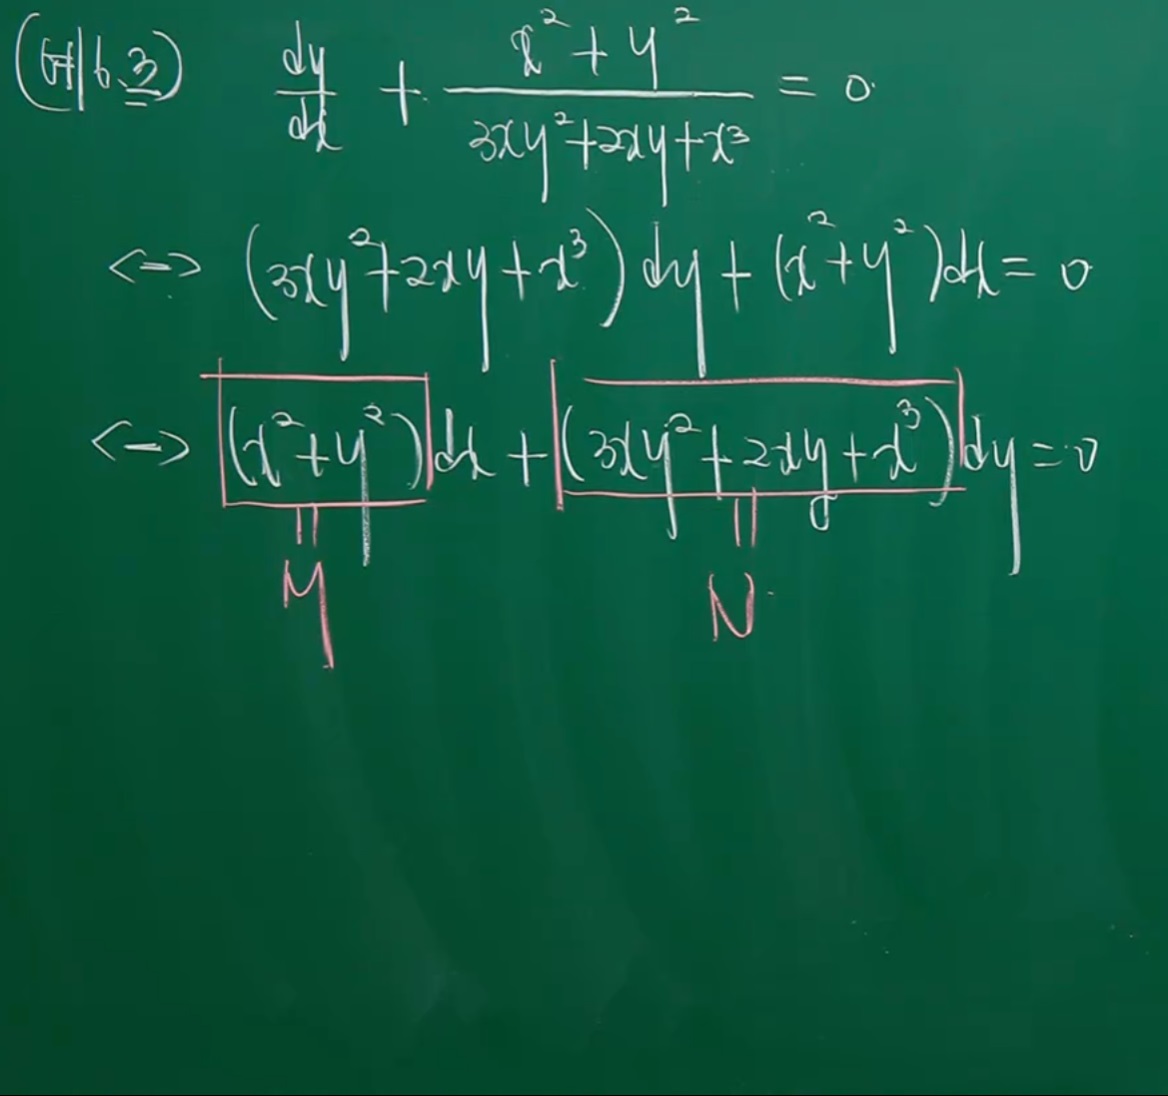 (예 6.3) dy/dx + (x² + y²)/(3xy² + 2xy + x³) = 0
<=> (3xy² + 2xy + x³) dy + (x² + y²) dx = 0
<=> (x² + y²) dx + (3xy² + 2xy + x³) dy = 0
|| ||
M N